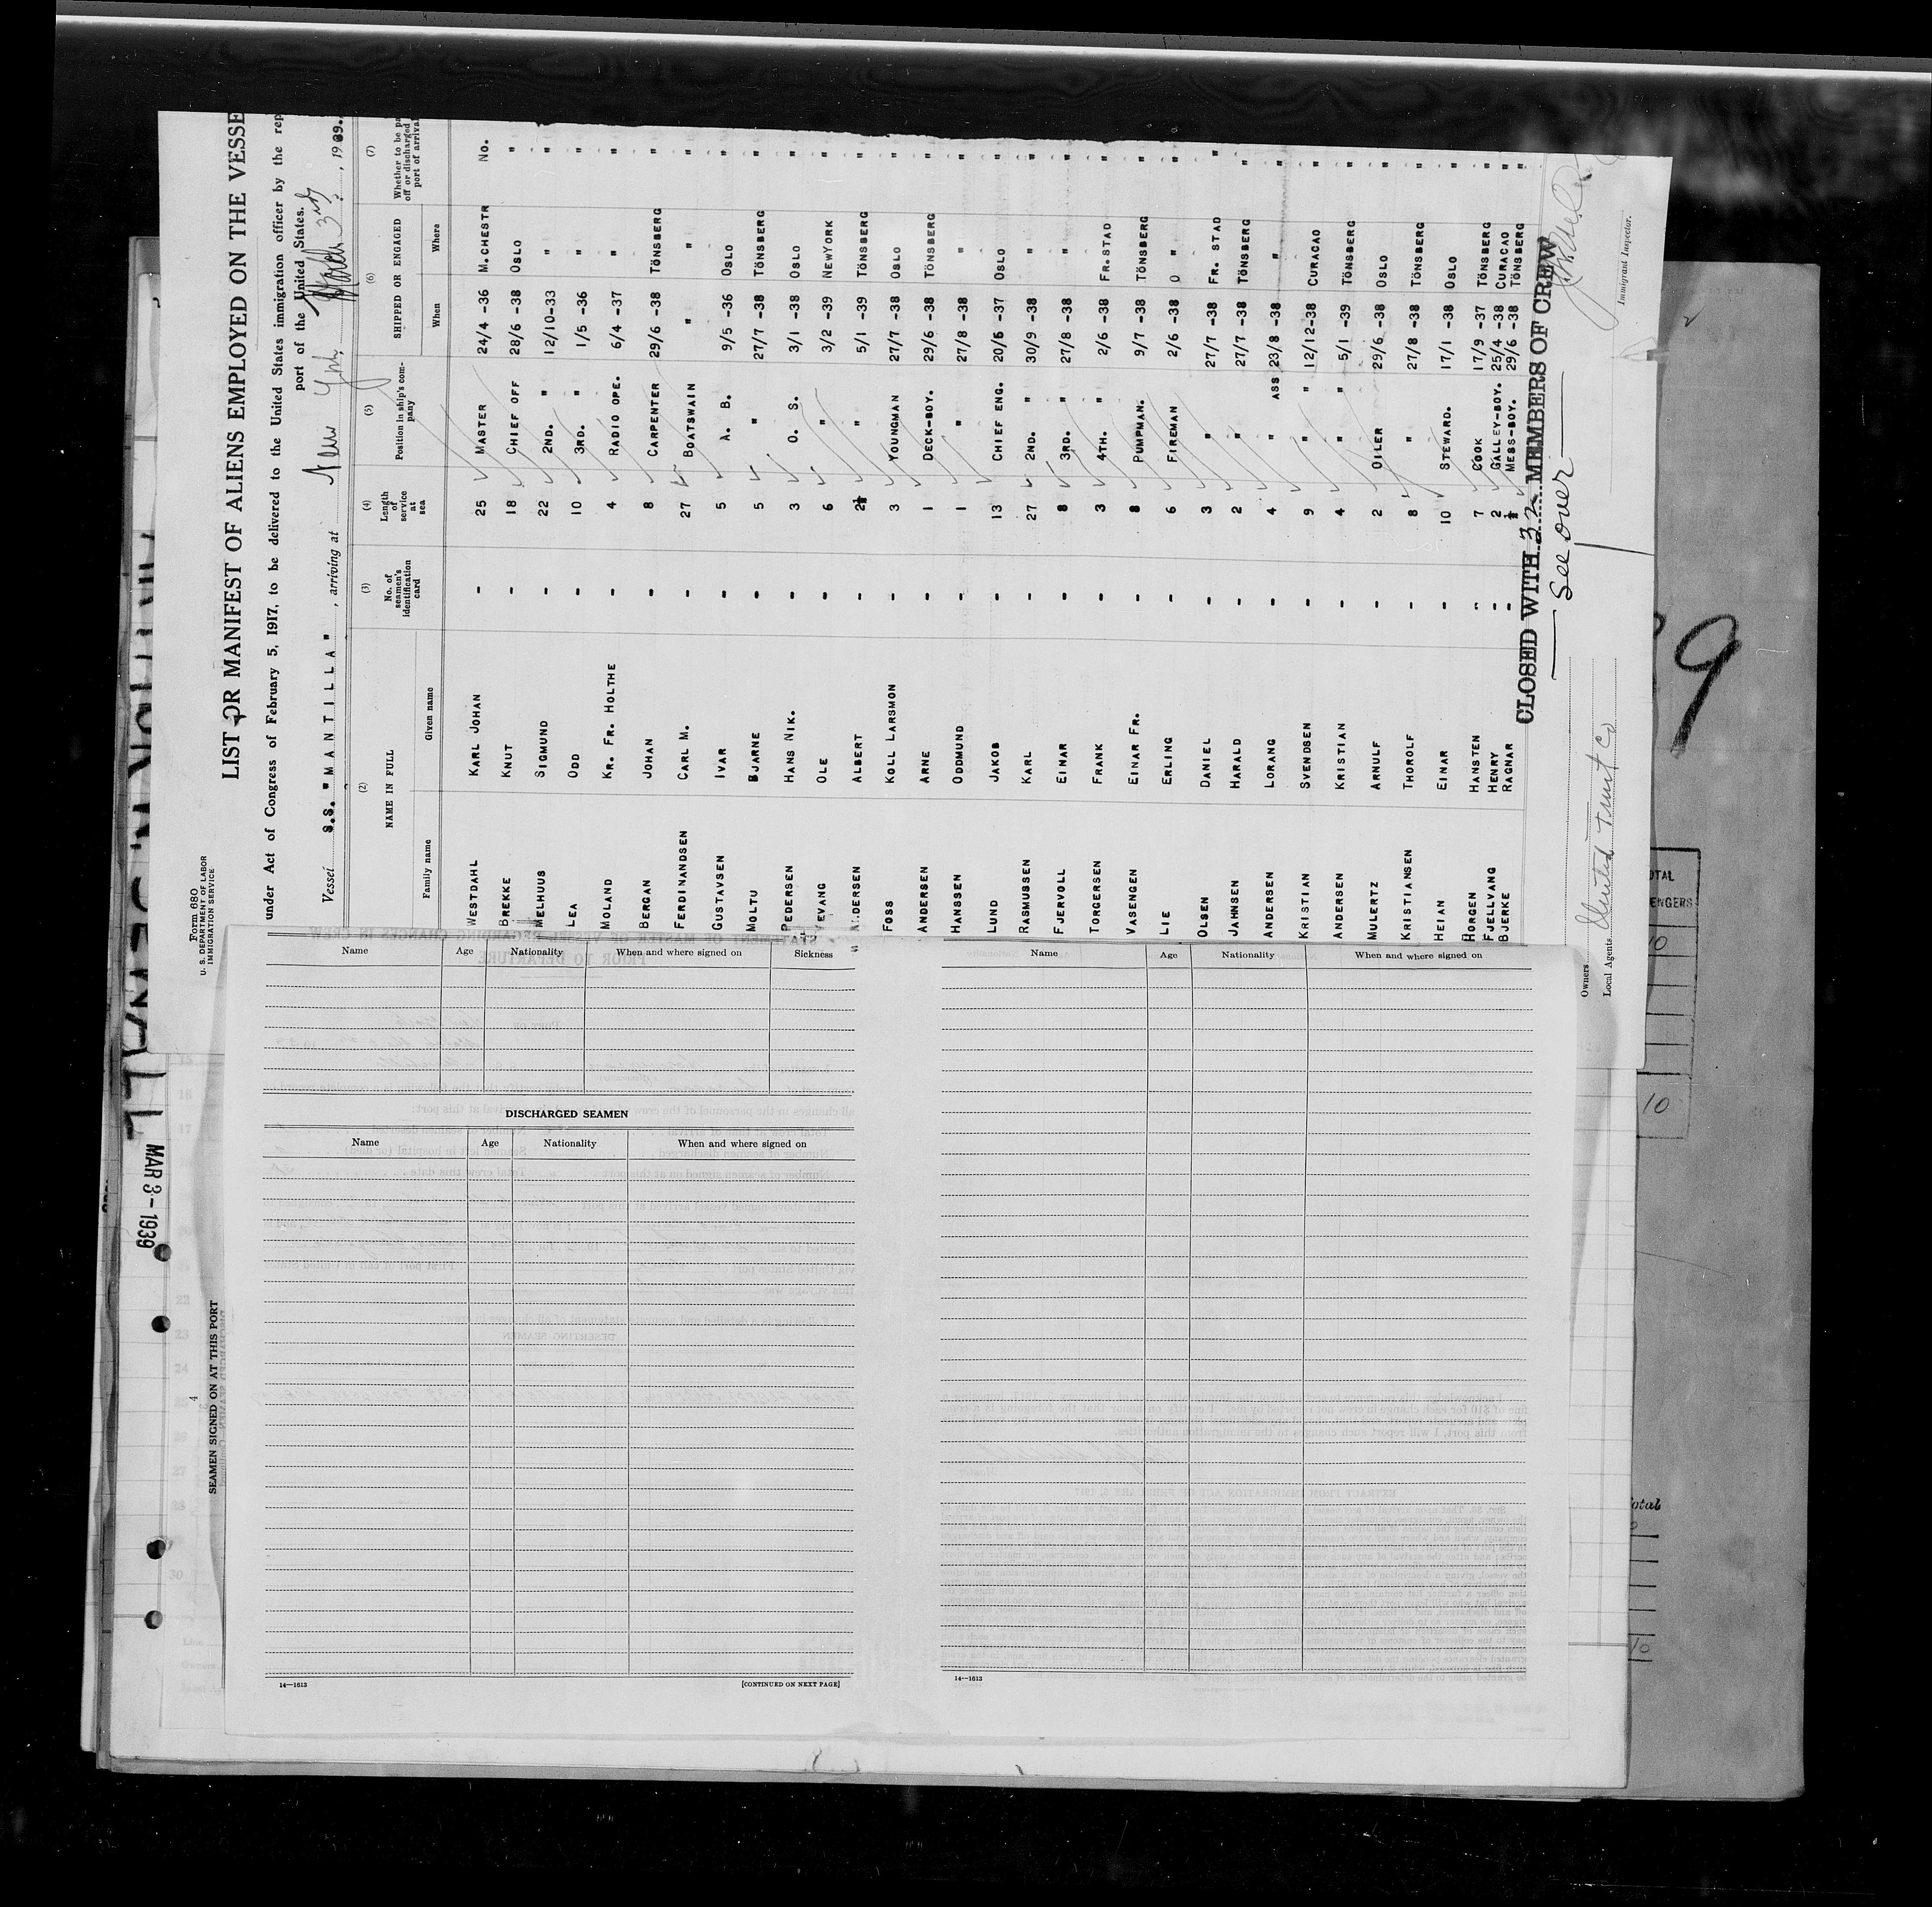 Form 680
U. S. DEPARTMENT OF LABOR
IMMIGRATION SERVICE
LIST OR MANIFEST OF ALIENS EMPLOYED ON THE VESSE
under Act of Congress of February 5, 1917, to be delivered to the United States immigration officer by the rep
port of the United States.
Vessel S.S. "MANTILLA" , arriving at New York March 3rd , 1939.
(2) (3) (4) (5) (6) (7)
NAME IN FULL No. of seamen's identification card Length of service at sea Position in ship's company SHIPPED OR ENGAGED Whether to be pa off or discharged port of arrival
Family name Given name When Where
WESTDAHL KARL JOHAN - 25 MASTER 24/4 -36 M.CHESTR No.
BREKKE KNUT - 18 CHIEF OFF 28/6 -38 OSLO "
MELHUUS SIGMUND - 22 2ND. " 12/10-33 " "
LEA ODD - 10 3RD. " 1/5 -36 " "
MOLAND KR. FR. HOLTHE - 4 RADIO OPE. 6/4 -37 " "
BERGAN JOHAN - 8 CARPENTER 29/6 -38 TÖNSBERG "
FERDINANDSEN CARL M. - 27 BOATSWAIN " " "
GUSTAVSEN IVAR - 5 A. B. 9/5 -36 OSLO "
MOLTU BJARNE - 5 " 27/7 -38 TÖNSBERG "
PEDERSEN HANS NIK. - 3 O. S. 3/1 -38 OSLO "
EVANG OLE - 6 " 3/2 -39 NEWYORK "
ANDERSEN ALBERT - 2½ " 5/1 -39 TÖNSBERG "
FOSS KOLL LARSMON - 3 YOUNGMAN 27/7 -38 OSLO "
ANDERSEN ARNE - 1 DECK-BOY. 29/6 -38 TÖNSBERG "
HANSSEN ODDMUND - 1 " 27/8 -38 " "
LUND JAKOB - 13 CHIEF ENG. 20/6 -37 OSLO "
RASMUSSEN KARL - 27 2ND. " 30/9 -38 " "
FJERVOLL EINAR - 8 3RD. " 27/8 -38 " "
TORGERSEN FRANK - 3 4TH. " 2/6 -38 FR.STAD "
VASENGEN EINAR FR. - 8 PUMPMAN. 9/7 -38 TÖNSBERG "
LIE ERLING - 6 FIREMAN 2/6 -38 O " "
OLSEN DANIEL - 3 " 27/7 -38 FR. STAD "
JAHNSEN HARALD - 2 " 27/7 -38 TÖNSBERG "
ANDERSEN LORANG - 4 " ASS 23/8 -38 " "
KRISTIAN SVENDSEN - 9 " " 12/12-38 CURACAO "
ANDERSEN KRISTIAN - 4 " " 5/1 -39 TÖNSBERG "
MULERTZ ARNULF - 2 OILER 29/6 -38 OSLO "
KRISTIANSEN THOROLF - 8 " 27/8 -38 TÖNSBERG "
HEIAN EINAR - 10 STEWARD. 17/1 -38 OSLO "
HORGEN HANSTEN - 7 COOK 17/9 -37 TÖNSBERG "
FJELLVANG HENRY - 2 GALLEY-BOY. 25/4 -38 CURACAO "
BJERKE RAGNAR - ½ MESS-BOY. 29/6 -38 TÖNSBERG "
CLOSED WITH 32 MEMBERS OF CREW
See over
Owners
Local Agents United Fruit Co
Immigrant Inspector.
MAR 3-1939
4
SEAMEN SIGNED ON AT THIS PORT
Name Age Nationality When and where signed on Sickness
DISCHARGED SEAMEN
Name Age Nationality When and where signed on
14—1613 [CONTINUED ON NEXT PAGE]
Name Age Nationality When and where signed on
14—1613
9
OTAL
ENGERS
10
10
otal
10